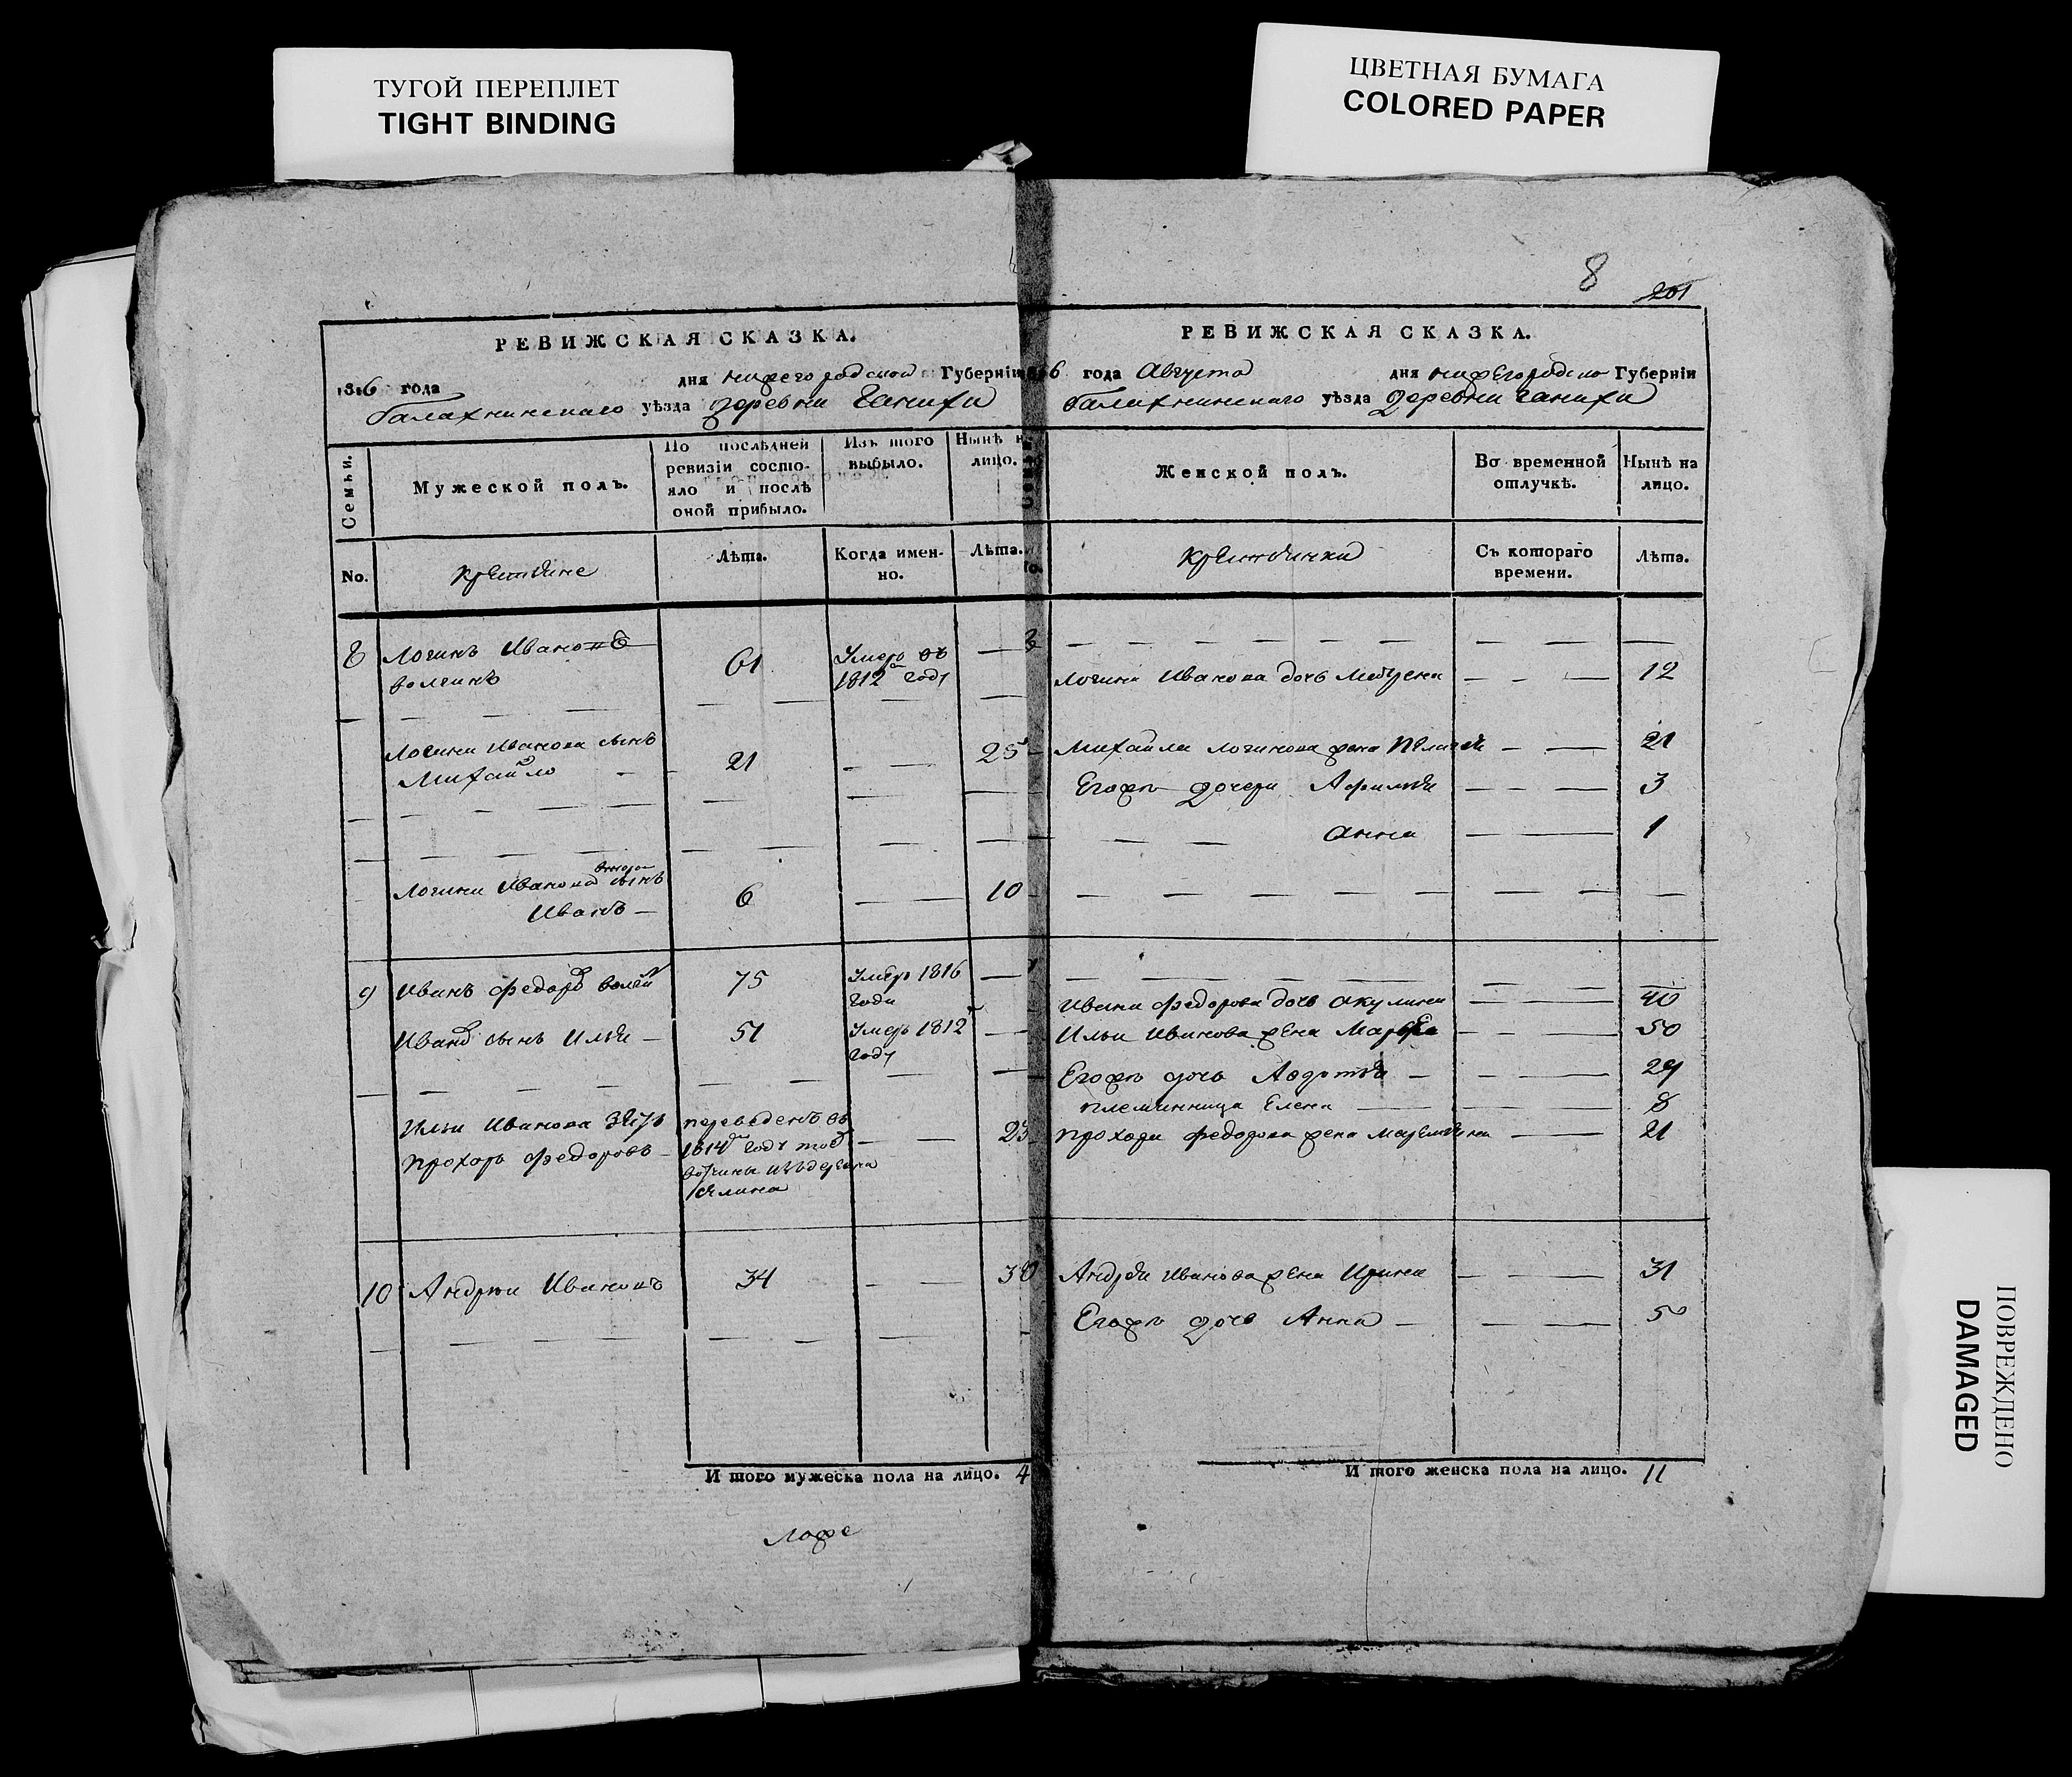 ТУГОЙ ПЕРЕПЛЕТ
TIGHT BINDING
ЦВЕТНАЯ БУМАГА
COLORED PAPER
8
201
РЕВИЖСКАЯ СКАЗКА.
1816 года дня нижегородской Губерніи
балахнинскаго уѣзда деревни Ганихи
Семьи.
Мужеской полъ.
По послѣдней ревизіи состояло и послѣ оной прибыло.
Изъ того выбыло.
Нынѣ на лицо.
No.
крестьяне
Лѣта.
Когда именно.
Лѣта.
8 Логинъ Ивановъ 61 Умеръ въ —
волгинъ 1812м году
Логина Иванова сынъ
Михайло 21 — — 25
второй
Логина Иванова сынъ
Иванъ — 6 — — 10
9 Иванъ федоровъ 75 Умеръ 1816 —
года
Иванов сынъ Илья — 51 Умеръ 1812 —
году
Ильи Иванова зять переведенъ въ
Прохоръ федоровъ — 1814м годъ той — — 23
вотчины изъ деревни
10 Андреи Ивановъ 34 — — 38
И того мужеска пола на лицо. 4
РЕВИЖСКАЯ СКАЗКА.
6 года Августа дня нижегородской Губерніи
балахнинскаго уѣзда деревни Ганихи
Женской полъ.
Во временной отлучкѣ.
Нынѣ на лицо.
крестьянки
Съ котораго времени.
Лѣта.
Логина Иванова дочь Матрена — — — 12
Михаила логинова жена Пелагея — — 21
Егожъ дочери Афимья — — — 3
Анна — — 1
Ивана федорова дочь Акулина — — 40
Ильи Иванова жена Марфа — — — 50
Егожъ дочь Авдотья — — — 29
племянница Елена — — — 8
Прохора федорова жена Маремьяна — — 21
Андрея Иванова жена Ирина — — — 31
Егожъ дочь Анна — — — — 5
И того женска пола на лицо. 11
ПОВРЕЖДЕНО
DAMAGED